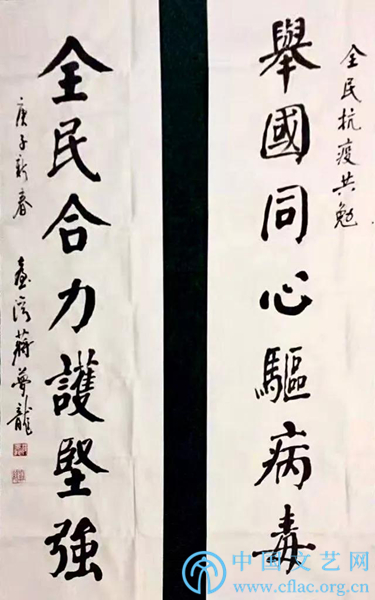 全民抗疫共勉
舉國同心驅病毒
全民合力護堅強
庚子新春 蔣夢龍
中国文艺网
www.cflac.org.cn